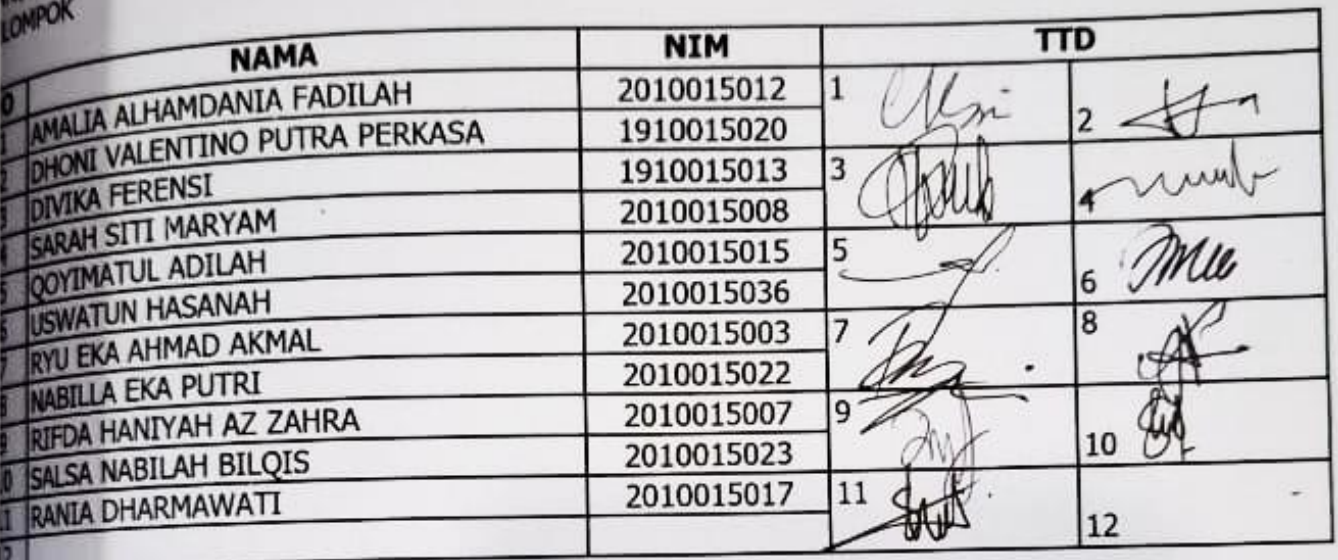 LOMPOK
NAMA NIM TTD
1 AMALIA ALHAMDANIA FADILAH 2010015012 1 2
2 DHONI VALENTINO PUTRA PERKASA 1910015020
3 DIVIKA FERENSI 1910015013 3 4
4 SARAH SITI MARYAM 2010015008
5 QOYIMATUL ADILAH 2010015015 5 6
6 USWATUN HASANAH 2010015036
7 RYU EKA AHMAD AKMAL 2010015003 7 8
8 NABILLA EKA PUTRI 2010015022
9 RIFDA HANIYAH AZ ZAHRA 2010015007 9 10
10 SALSA NABILAH BILQIS 2010015023
11 RANIA DHARMAWATI 2010015017 11 12